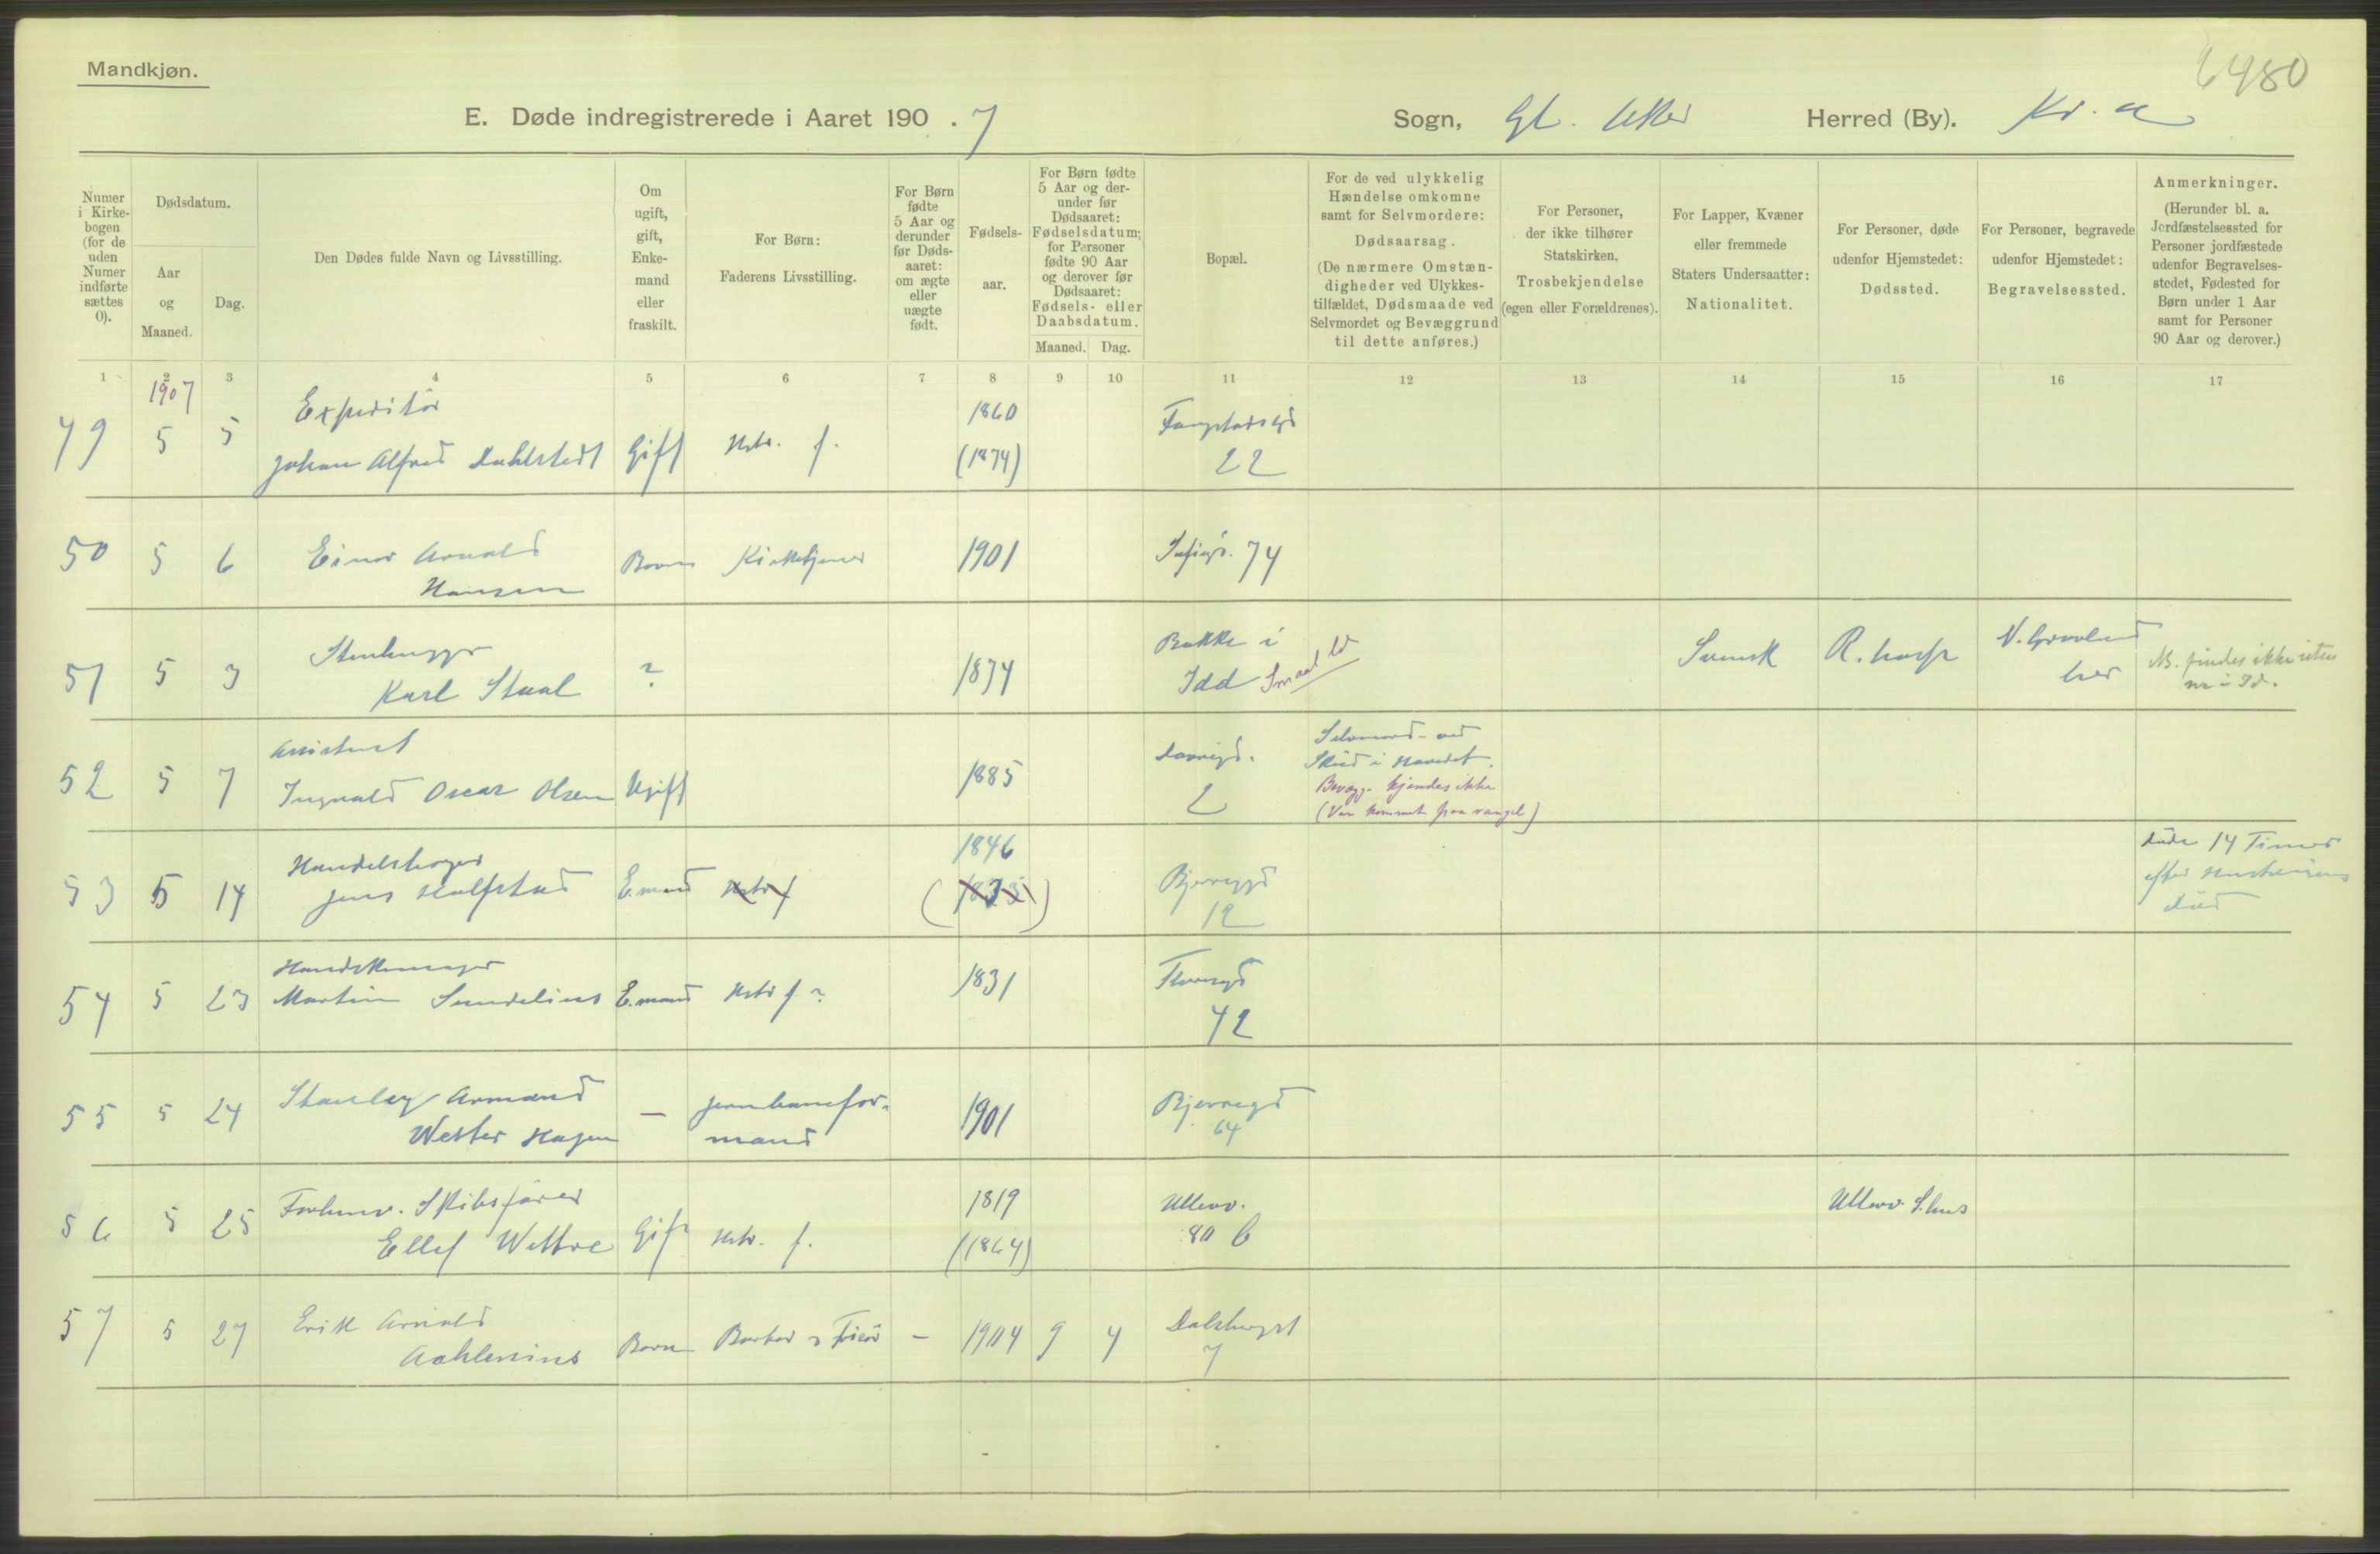 Mandkjøn.
6480
E. Døde indregistrerede i Aaret 190 . 7 Sogn, Gl. Aker Herred (By). Kr. a
Numer i Kirkebogen (for de uden Numer indførte sættes 0).
Dødsdatum.
Aar og Maaned.
Dag.
Den Dødes fulde Navn og Livsstilling.
Om ugift, gift, Enkemand eller fraskilt.
For Børn: Faderens Livsstilling.
For Børn fødte 5 Aar og derunder før Dødsaaret: om ægte eller uægte født.
Fødselsaar.
For Børn fødte 5 Aar og derunder før Dødsaaret: Fødselsdatum; for Personer fødte 90 Aar og derover før Dødsaaret: Fødsels- eller Daabsdatum.
Maaned. Dag.
Bopæl.
For de ved ulykkelig Hændelse omkomne samt for Selvmordere: Dødsaarsag. (De nærmere Omstændigheder ved Ulykkestilfældet, Dødsmaade ved Selvmordet og Bevæggrund til dette anføres.)
For Personer, der ikke tilhører Statskirken, Trosbekjendelse (egen eller Forældrenes).
For Lapper, Kvæner eller fremmede Staters Undersaatter: Nationalitet.
For Personer, døde udenfor Hjemstedet: Dødssted.
For Personer, begravede udenfor Hjemstedet: Begravelsessted.
Anmerkninger. (Herunder bl. a. Jordfæstelsessted for Personer jordfæstede udenfor Begravelsesstedet, Fødested for Børn under 1 Aar samt for Personer 90 Aar og derover.)
1 2 3 4 5 6 7 8 9 10 11 12 13 14 15 16 17
1907
Expeditör 1860
49 5 5 Johan Alfred Dahlstedt Gift Hstr. f. (1874) 22
50 5 6 Einar Arnold Barn Kirketjener 1901 74
Hansen
Stenhugger Bakke i
51 5 3 Karl Staal ? 1874 Idd Smaal Svensk R. hosp V. Gravlund her
NB. findes ikke
Assistent Selvmord ved
52 5 7 Ingvald Oscar Olsen Ugift 1885 2 Skud i Hovedet.
Bevægg. kjendes ikke
(Var kommet fra rangel)
Handelsborger 1846
53 5 14 Jens Halfstad E.mand Hstr f (1835) Bjerregd 12
Døde 14 Timer
efter Hustruens
Død
Handskemager
54 5 23 Martin Sundelius E.mand Hstr f ? 1831 Thoresgd 42
55 5 24 Stanley Armand — Jernbanefor- 1901 Bjerregd
Wester Hagen mand 64
Forhenv. Skibsfører 1819 Ullevv. Ullevv. S.hus
56 5 25 Ellef Wettre Gift Hstr. f. (1864) 80 b
57 5 27 Erik Arnold Barn Barber & Frisör — 1904 9 4 Dalsbergst
Aahlenius 7